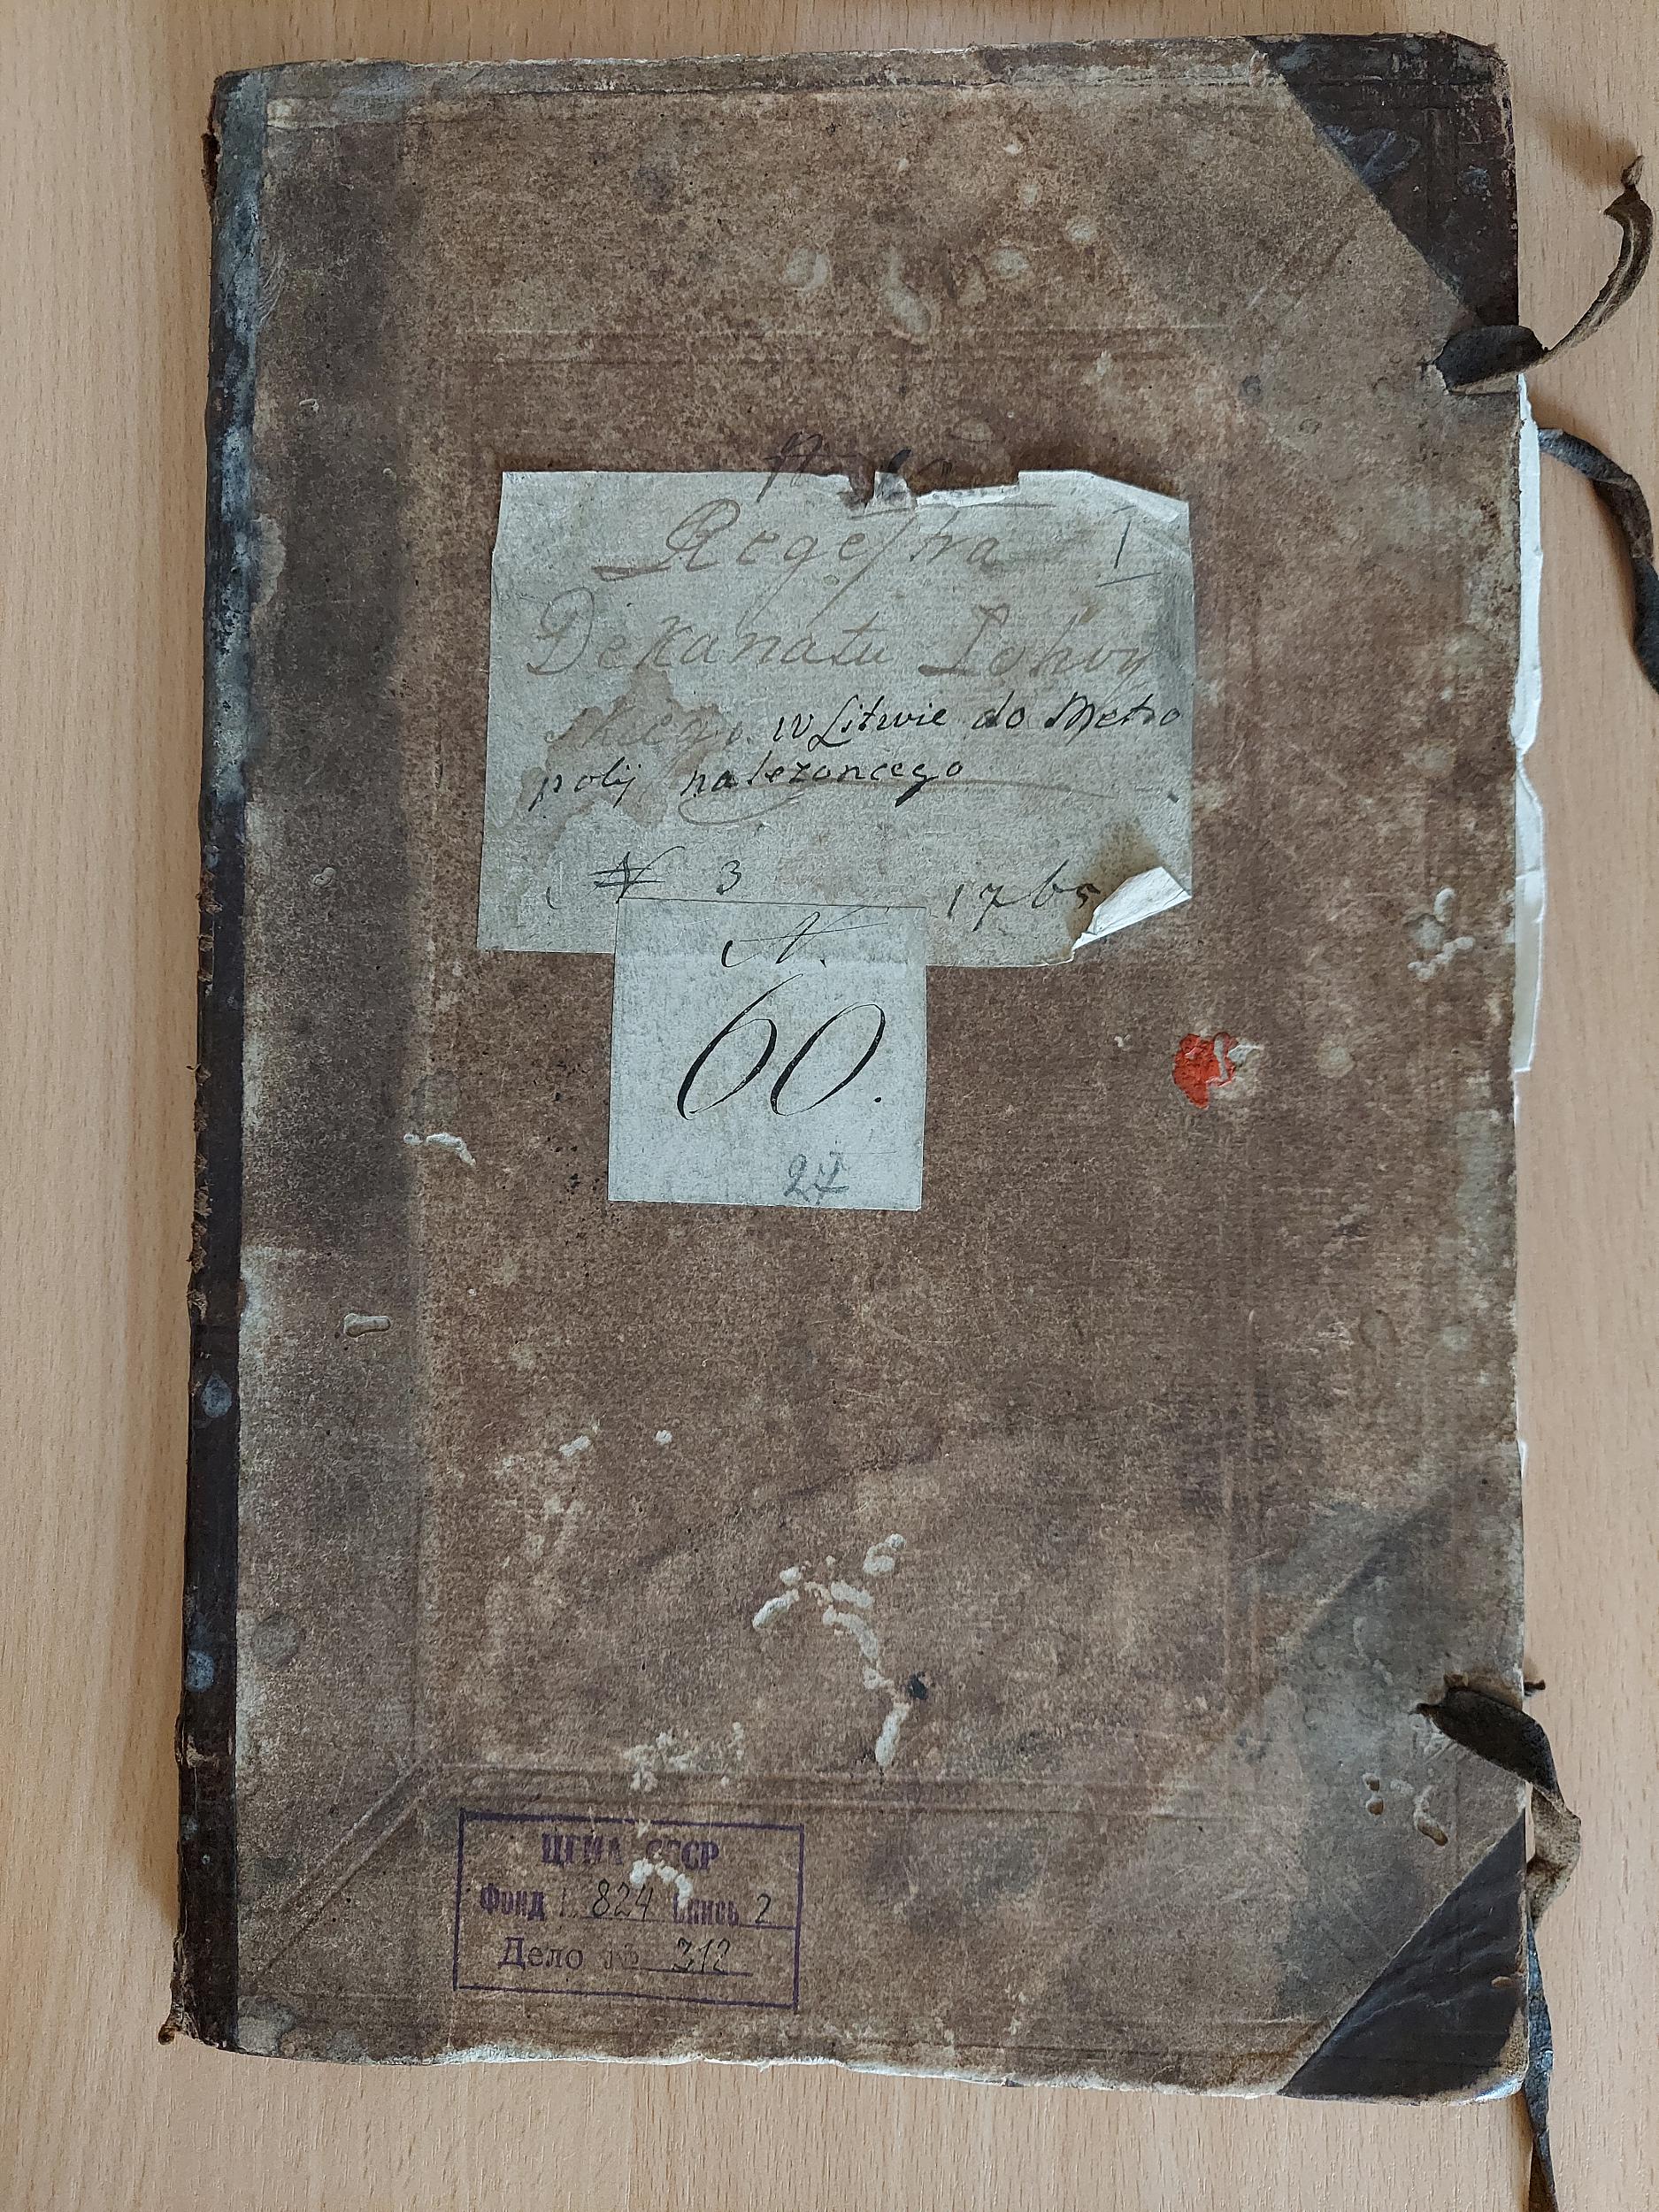 Regestra I
Dekanatu Łohoy
skiego w Litwie do Metro
polij należoncego
N 3 1765
N.
60.
27
ЦГИА СССР
Фонд № 824 Опись 2
Дело № 312